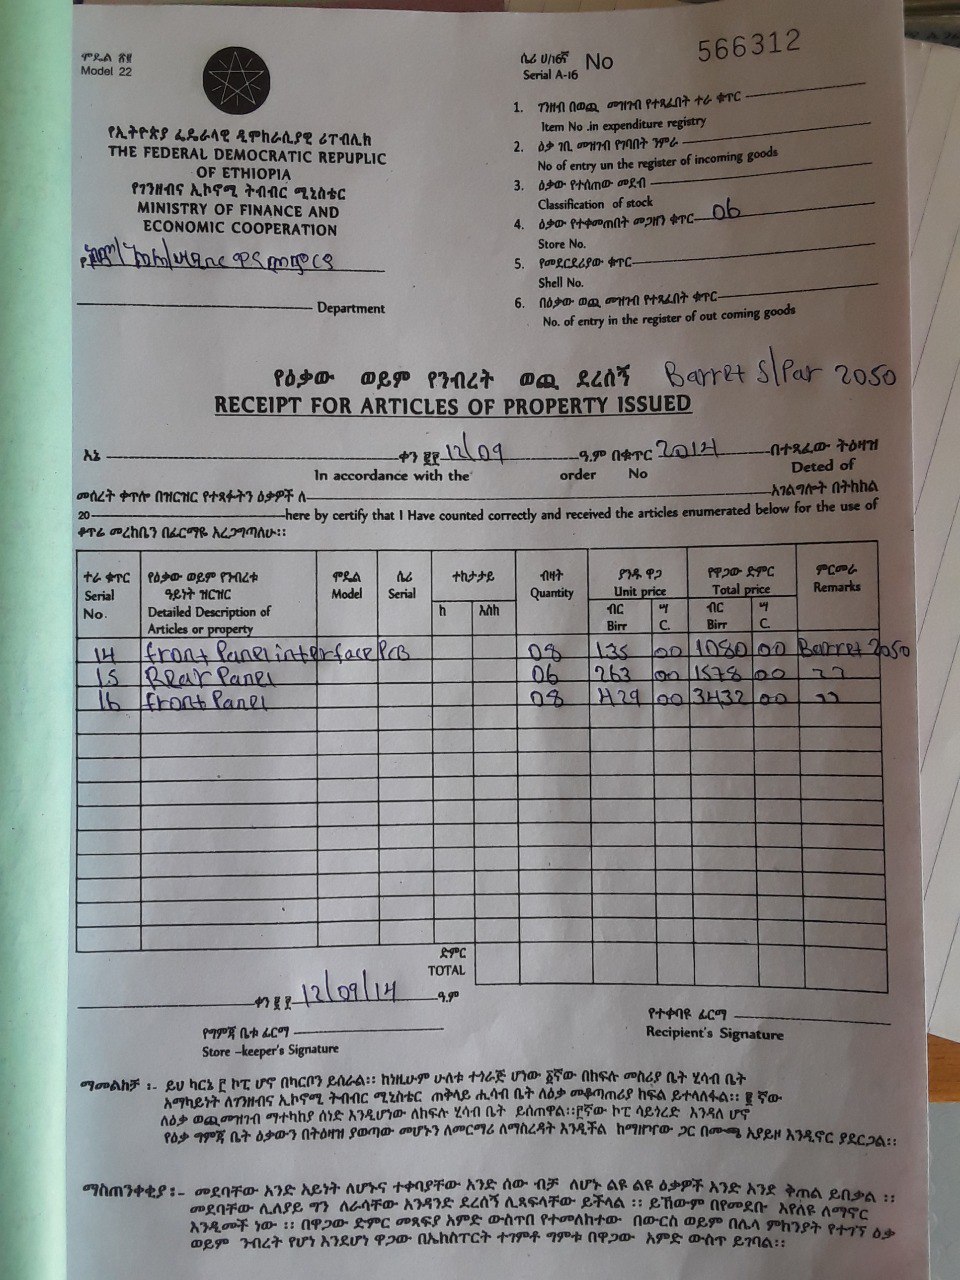 ሞዴል ፳፪
Model 22
የኢትዮጵያ ፌዴራላዊ ዲሞክራሲያዊ ሪፐብሊክ
THE FEDERAL DEMOCRATIC REPUPLIC
OF ETHIOPIA
የገንዘብና ኢኮኖሚ ትብብር ሚኒስቴር
MINISTRY OF FINANCE AND
ECONOMIC COOPERATION
Department
ሴሪ ሀ/16ኛ No 566312
Serial A-16
1. ገንዘብ በወጪ መዝገብ የተጻፈበት ተራ ቁጥር
Item No .in expenditure registry
2. ዕቃ ገቢ መዝገብ የገባበት ንምራ
No of entry un the register of incoming goods
3. ዕቃው የተሰጠው መደብ
Classification of stock
4. ዕቃው የተቀመጠበት መጋዘን ቁጥር 06
Store No.
5. የመደርደሪያው ቁጥር
Shell No.
6. በዕቃው ወጪ መዝገብ የተጻፈበት ቁጥር
No. of entry in the register of out coming goods
የዕቃው ወይም የንብረት ወጪ ደረሰኝ Barret S/Par 2050
RECEIPT FOR ARTICLES OF PROPERTY ISSUED
እኔ ቀን ፪፻ 12/09 ዓ.ም በቁጥር 2014 በተጻፈው ትዕዛዝ
In accordance with the order No Deted of
መሰረት ቀጥሎ በዝርዝር የተጻፉትን ዕቃዎች ለ አገልግሎት በትክክል
20 here by certify that I Have counted correctly and received the articles enumerated below for the use of
ቆጥሬ መረከቤን በፊርማዬ አረጋግጣለሁ፡፡
ተራ ቁጥር የዕቃው ወይም የንብረቱ ሞዴል ሴሪ ተከታታይ ብዛት ያንዱ ዋጋ የዋጋው ድምር ምርመራ
Serial ዓይነት ዝርዝር Model Serial Quantity Unit price Total price Remarks
No. Detailed Description of ከ እስከ ብር ሣ ብር ሣ
Articles or property Birr C. Birr C.
14 front Panel interface PCB 08 135 00 1080 00 Barret 2050
15 Rear Panel 06 263 00 1578 00 ״
16 front Panel 08 429 00 3432 00 ״
ድምር
TOTAL
ቀን ፪፻ 12/09/14 ዓ.ም
የግምጃ ቤቱ ፊርማ
Store -keeper's Signature
የተቀባዩ ፊርማ
Recipient's Signature
ማመልከቻ ፡- ይህ ካርኔ ፫ ኮፒ ሆኖ በካርቦን ይሰራል፡፡ ከነዚሁም ሁለቱ ተጎራጅ ሆነው ፩ኛው በከፍሉ መስሪያ ቤት ሂሳብ ቤት
አማካይነት ለገንዘብና ኢኮኖሚ ትብብር ሚኒስቴር ጠቅላይ ሒሳብ ቤት ለዕቃ መቆጣጠሪያ ክፍል ይተላለፋል፡፡ ፪ ኛው
ለዕቃ ወጪመዝገብ ማተካከያ ሰነድ እንዲሆነው ለከፍሉ ሂሳብ ቤት ይሰጠዋል፡፡፫ኛው ኮፒ ሳይጎረድ እንዳለ ሆኖ
የዕቃ ግምጃ ቤት ዕቃውን በትዕዛዝ ያወጣው መሆኑን ለመርማሪ ለማስረዳት እንዲችል ከማዘዣው ጋር በሙጫ አያይዞ እንዲኖር ያደርጋል፡፡
ማስጠንቀቂያ፡- መደባቸው አንድ አይነት ለሆኑና ተቀባያቸው አንድ ሰው ብቻ ለሆኑ ልዩ ልዩ ዕቃዎች አንድ አንድ ቅጠል ይበቃል ፡፡
መደባቸው ሊለያይ ግን ለራላቸው እንዳንድ ደረሰኝ ሊጻፍላቸው ይችላል ፡፡ ይኸውም በየመደቡ እየለዩ ለማኖር
እንዲመች ነው ፡፡ በዋጋው ድምር መጻፍያ አምድ ውስጥበ የተመለከተው በውርስ ወይም በሌላ ምክንያት የተገኘ ዕቃ
ወይም ንብረት የሆነ እንደሆነ ዋጋው በኤክስፐርት ተገምቶ ግምቱ በዋጋው አምድ ውስጥ ይገባል፡፡